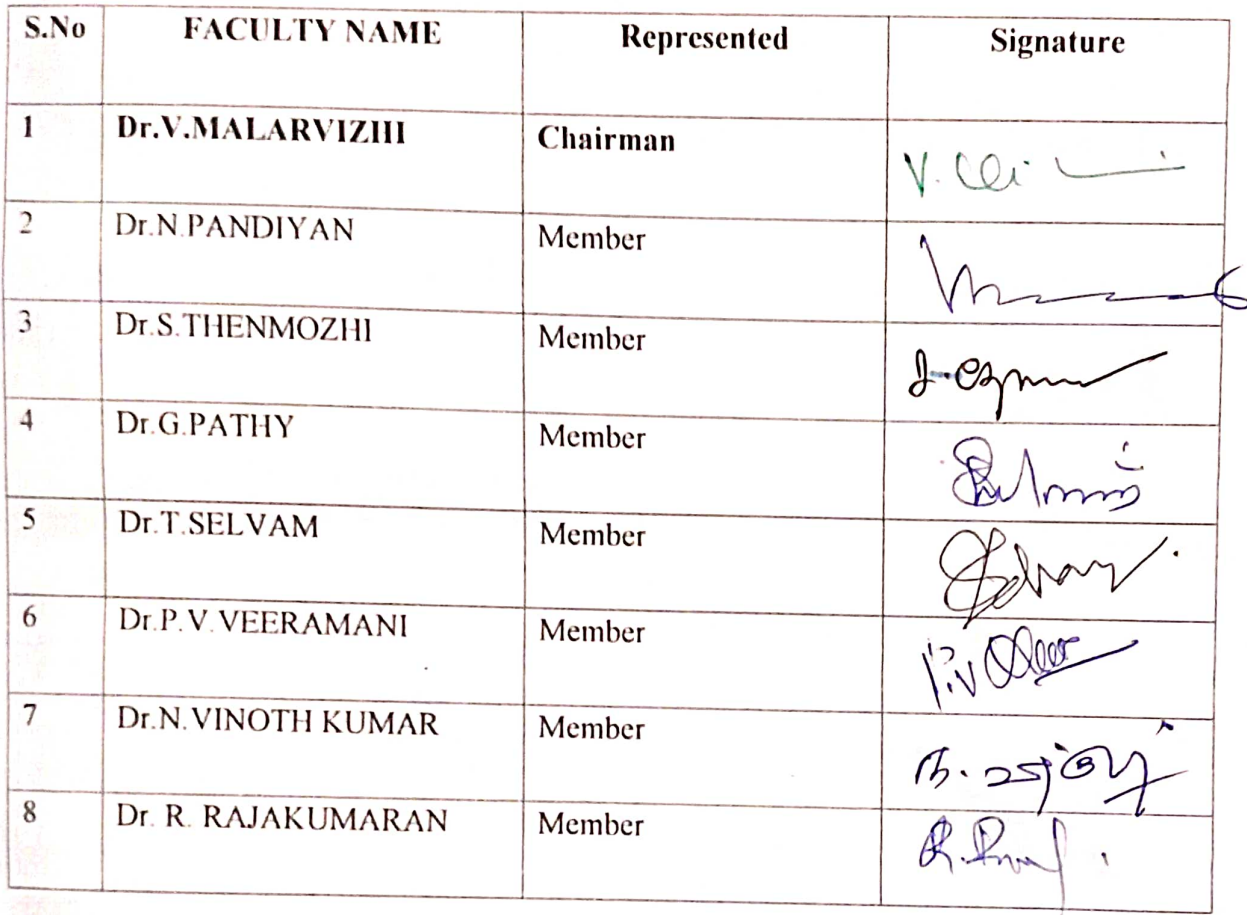 S.No FACULTY NAME Represented Signature
1 Dr.V.MALARVIZHI Chairman
2 Dr.N.PANDIYAN Member
3 Dr.S.THENMOZHI Member
4 Dr.G.PATHY Member
5 Dr.T.SELVAM Member
6 Dr.P.V.VEERAMANI Member
7 Dr.N.VINOTH KUMAR Member
8 Dr. R. RAJAKUMARAN Member